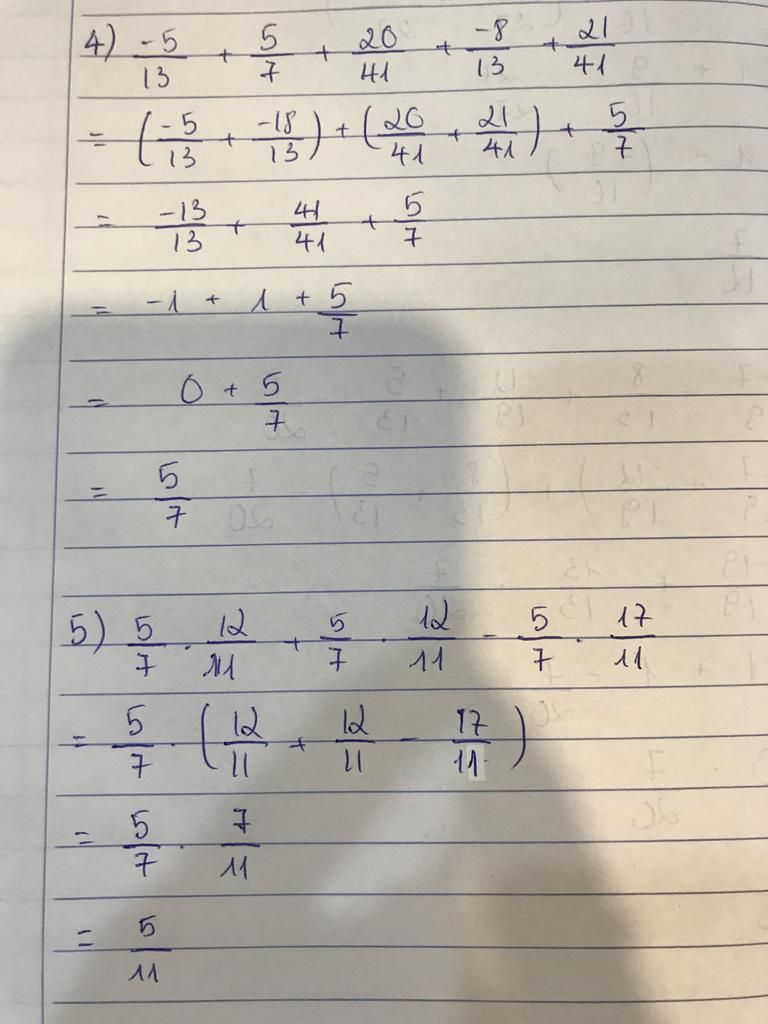 4) -5/13 + 5/7 + 20/41 + -8/13 + 21/41
= (-5/13 + -18/13) + (20/41 + 21/41) + 5/7
= -13/13 + 41/41 + 5/7
= -1 + 1 + 5/7
= 0 + 5/7
= 5/7
5) 5/7 . 12/11 + 5/7 . 12/11 - 5/7 . 17/11
= 5/7 . (12/11 + 12/11 - 17/11)
= 5/7 . 7/11
= 5/11